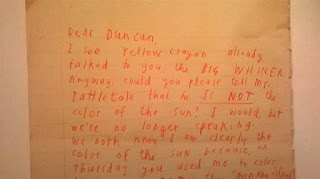 Dear Duncan,
I see Yellow crayon already
talked to you, the BIG WHINER.
Anyway, could you please tell Mr.
Tattletale that he IS NOT the
color of the sun? I would, but
we're no longer speaking.
We both know I am clearly the
color of the sun because, on
Thursday, you used me to color